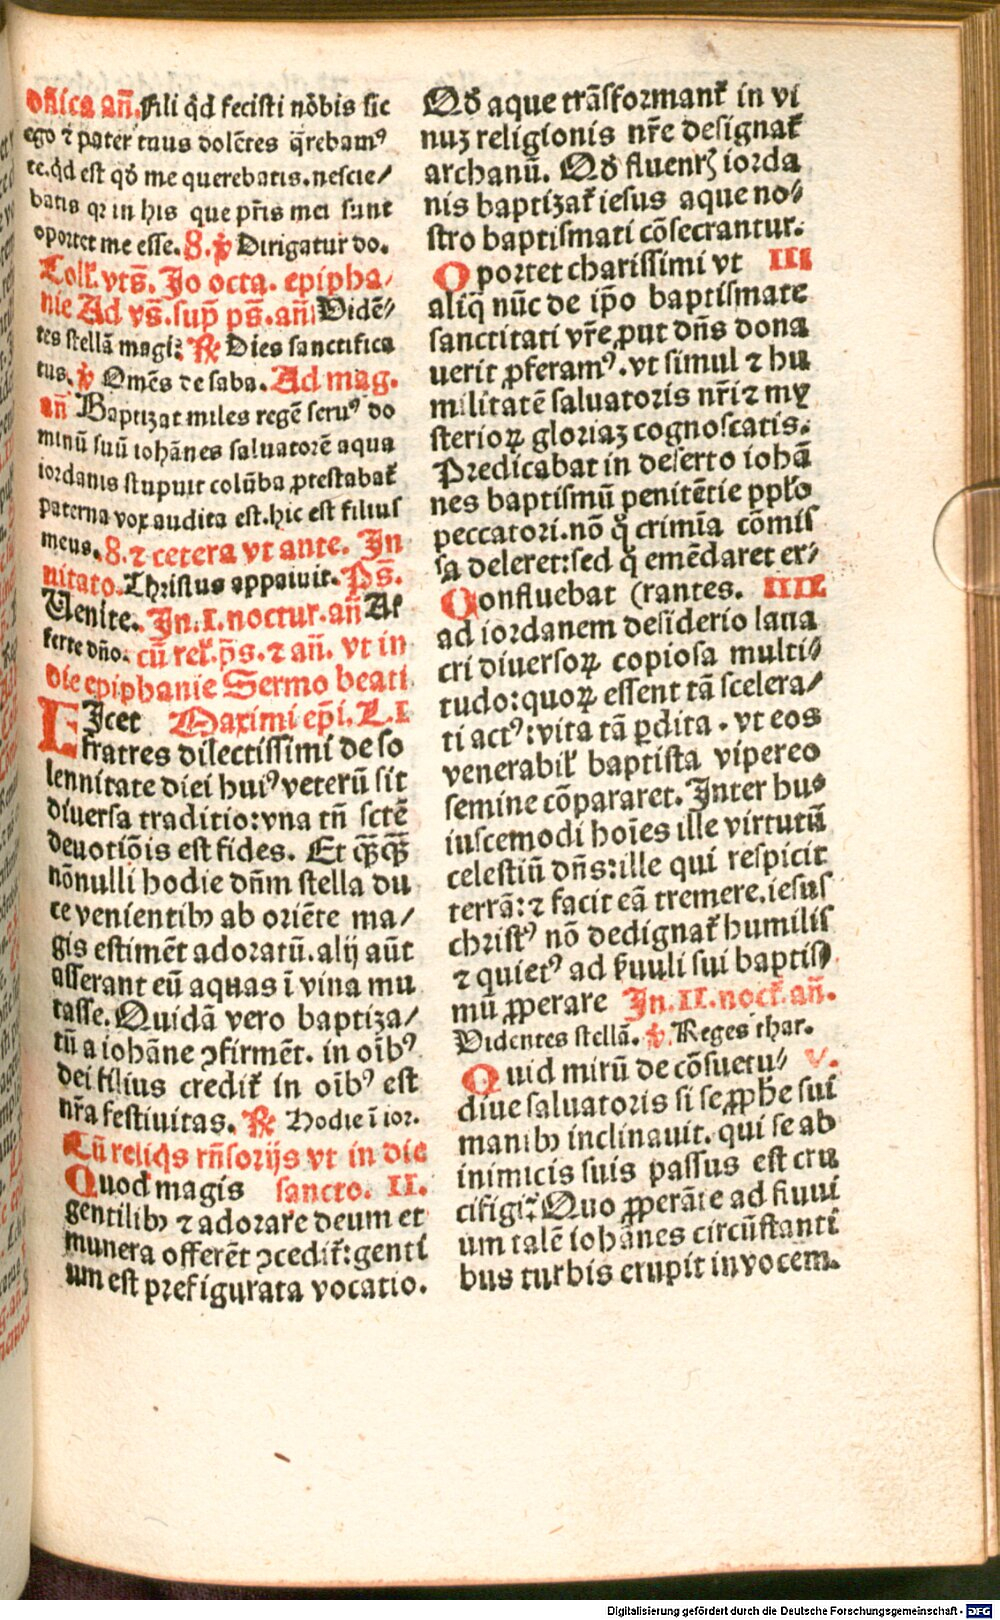 dn̄ica an̄. Fili q̄d fecisti nōbis sic
ego ⁊ pater tuus dolētes q̄rebamꝰ
te. q̄d est qꝺ me querebatis. nescie/
batis qꝛ in his que pr̄is mei sunt
oportet me esse. 8. ꝟ Dirigatur do.
Coll'. vts̄. Jn octa. epipha/
nie Ad vs̄. sup̄ ps̄. an̄ Vidē/
tes stellā magi: ℞ Dies sanctifica
tus. ꝟ Omēs de saba. Ad mag.
an̄ Baptizat miles regē seruꝰ do
minū suū iohānes saluatorē aqua
iordanis stupuit colūba ꝓtestabat᷑
paterna vox audita est. hic est filius
meus. 8. ⁊ cetera vt ante. Jn
uitato. Christus appaiuit. Ps̄.
Uenite. Jn. I. noctur. an̄ Af
ferte dn̄o. cū rel'. p̄s. ⁊ an̄. vt in
die epiphanie Sermo beati
LJcet Maximi ep̄i. L. I
fratres dilectissimi de so
lennitate diei huiꝰ veterū sit
diuersa traditio: vna tn̄ sctē
deuotiōis est fides. Et qꝫ̄qꝫ̄
nōnulli hodie dn̄m stella du
ce venientibꝰ ab oriēte ma/
gis estimēt adoratū. alij aūt
asserant eū aquas ī vina mu
tasse. Quidā vero baptiza/
tū a iohāne ꝯfirmēt. in oībꝰ
dei filius credit᷑ in oībꝰ est
nr̄a festiuitas. ℞ Hodie ī ior.
Cū reliq̄s rn̄sorijs vt in die
Quod magis sancto. II.
gentilibꝰ ⁊ adorare deum et
munera offerēt ꝯcedit᷑: genti
um est prefigurata vocatio.
Qꝺ aque trāsformant᷑ in vi
nuꝫ religionis nr̄e designat᷑
archanū. Qꝺ fluentꝭ iorda
nis baptizat᷑ iesus aque no/
stro baptismati cōsecrantur.
Oportet charissimi vt III
aliq̄ nūc de ip̄o baptismate
sanctitati vr̄e ꝓut dn̄s dona
uerit ꝓferamꝰ. vt simul ⁊ hu
militatē saluatoris nr̄i ⁊ my
sterioꝝ gloriaꝫ cognoscatis.
Predicabat in deserto iohā
nes baptismū penitētie pp̄lo
peccatori. nō q̇ crimīa cōmis
sa deleret: sed q̇ emēdaret er/
Confluebat (rantes. IIII.
ad iordanem desiderio laua
cri diuersoꝝ copiosa multi/
tudo: quoꝝ essent tā scelera/
ti actꝰ: vita tā ꝑdita. vt eos
venerabil' baptista vipereo
semine cōpararet. Inter hus
iuscemodi hoīes ille virtutū
celestiū dn̄s: ille qui respicit
terrā: ⁊ facit eā tremere. iesus
christꝰ nō dedignat᷑ humilis
⁊ quietꝰ ad fuuli sui baptis
mū ꝓꝑerare Jn. II. noct'. an̄.
Videntes stellā. ꝟ. Reges thar.
Quid mirū de cōsuetu/ V.
dine saluatoris si se ꝓphe sui
manibꝰ inclinauit. qui se ab
inimicis suis passus est cru
cifigi: Quo ꝓꝑerāte ad fluui
um talē iohānes circūstanti
bus turbis erupit in vocem.
Digitalisierung gefördert durch die Deutsche Forschungsgemeinschaft - DFG